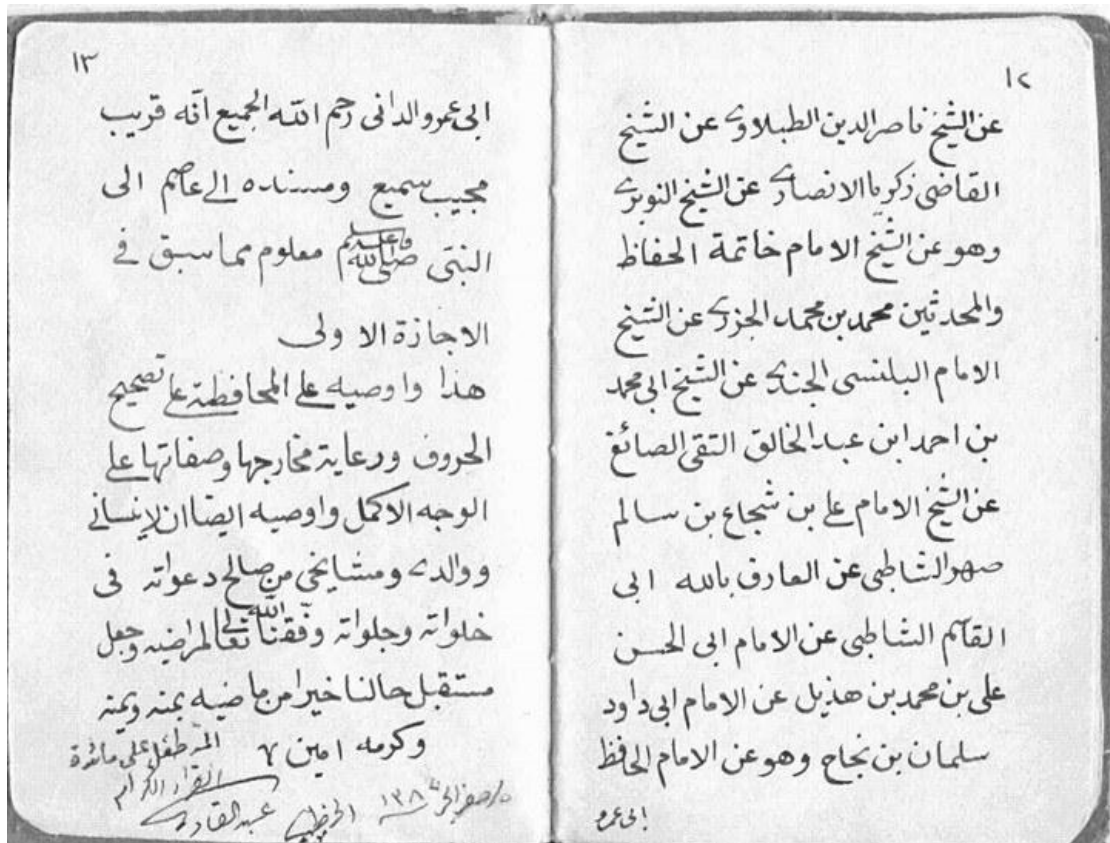 ١٢
عن الشيخ ناصر الدين الطبلاوى عن الشيخ
القاضى زكريا الانصارى عن الشيخ النويرى
وهو عن الشيخ الامام خاتمة الحفاظ
والمحدثين محمد بن محمد الجزرى عن الشيخ
الامام البلنسى الجندى عن الشيخ ابى محمد
بن احمد ابن عبد الخالق التقى الصائغ
عن الشيخ الامام على بن شجاع بن سالم
صهر الشاطبى عن العارف بالله ابى
القاسم الشاطبى عن الامام ابى الحسن
على بن محمد بن هذيل عن الامام ابى داود
سلمان بن نجاح وهو عن الامام الحافظ
ابى عمرو
١٣
ابى عمرو الدانى رحم الله الجميع انه قريب
مجيب سميع ومسنده الى عاصم الى
النبى صلى الله عليه وسلم معلوم مما سبق فى
الاجازة الاولى
هذا واوصيه على المحافظة على تصحيح
الحروف ورعاية مخارجها وصفاتها على
الوجه الاكمل واوصيه ايضا ان لا ينسانى
ووالدى ومشايخى من صالح دعواته فى
خلواته وجلواته وفقنا الله تعالى لمراضيه وجعل
مستقبل حالنا خيرا من ماضيه بمنه ويمنه
وكرمه امين
المتطفل على مائدة
القراء الكرام
عبد القادر
صفر الخير ١٣٨